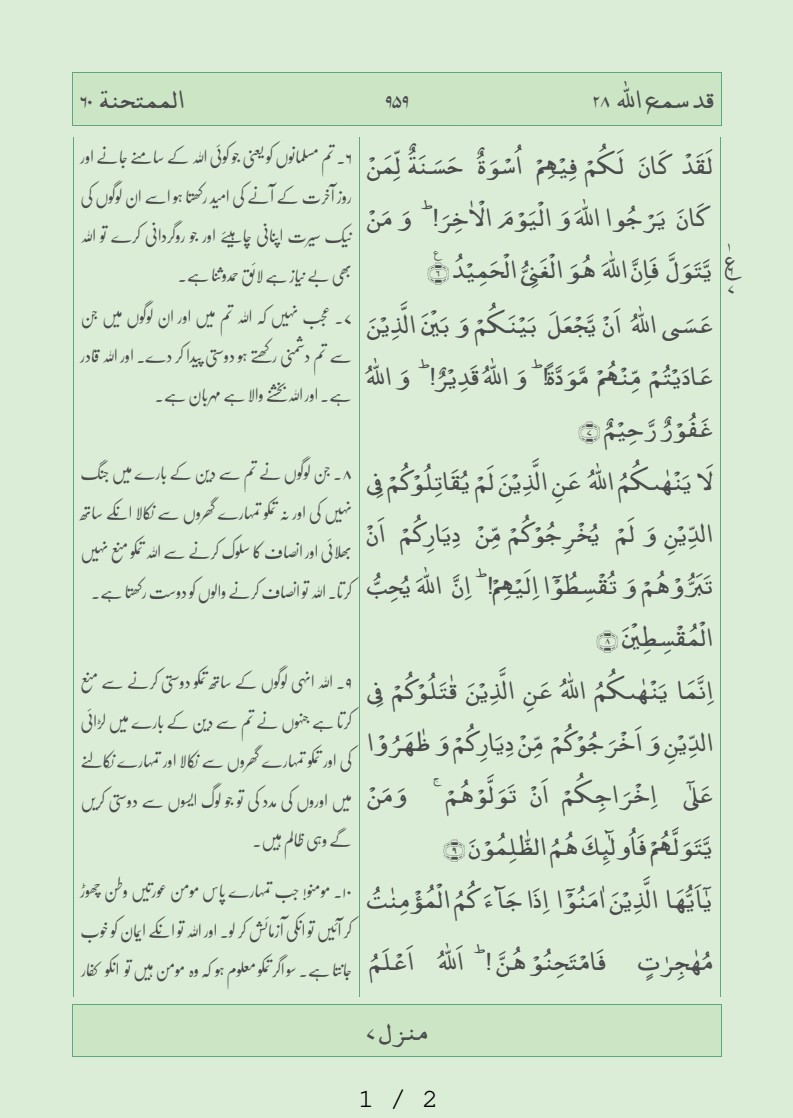 قد سمع الله ۲۸
۹۵۹
الممتحنة ۶۰
لَقَدْ كَانَ لَكُمْ فِيْهِمْ اُسْوَةٌ حَسَنَةٌ لِّمَنْ
كَانَ يَرْجُوا اللّٰهَ وَ الْيَوْمَ الْاٰخِرَ!ؕ وَ مَنْ
يَّتَوَلَّ فَاِنَّ اللّٰهَ هُوَ الْغَنِىُّ الْحَمِيْدُ ۶
ع
۷
عَسَى اللّٰهُ اَنْ يَّجْعَلَ بَيْنَكُمْ وَ بَيْنَ الَّذِيْنَ
عَادَيْتُمْ مِّنْهُمْ مَّوَدَّةً!ؕ وَ اللّٰهُ قَدِيْرٌ!ؕ وَ اللّٰهُ
غَفُوْرٌ رَّحِيْمٌ ۷
لَا يَنْهٰٮكُمُ اللّٰهُ عَنِ الَّذِيْنَ لَمْ يُقَاتِلُوْكُمْ فِى
الدِّيْنِ وَ لَمْ يُخْرِجُوْكُمْ مِّنْ دِيَارِكُمْ اَنْ
تَبَرُّوْهُمْ وَ تُقْسِطُوْۤا اِلَيْهِمْ!ؕ اِنَّ اللّٰهَ يُحِبُّ
الْمُقْسِطِيْنَ ۸
اِنَّمَا يَنْهٰٮكُمُ اللّٰهُ عَنِ الَّذِيْنَ قٰتَلُوْكُمْ فِى
الدِّيْنِ وَ اَخْرَجُوْكُمْ مِّنْ دِيَارِكُمْ وَ ظٰهَرُوْا
عَلٰٓى اِخْرَاجِكُمْ اَنْ تَوَلَّوْهُمْ ۚ وَمَنْ
يَّتَوَلَّهُمْ فَاُولٰٓٮِٕكَ هُمُ الظّٰلِمُوْنَ ۹
يٰۤاَيُّهَا الَّذِيْنَ اٰمَنُوْۤا اِذَا جَآءَكُمُ الْمُؤْمِنٰتُ
مُهٰجِرٰتٍ فَامْتَحِنُوْهُنَّ!ؕ اَللّٰهُ اَعْلَمُ
۶۔ تم مسلمانوں کو یعنی جو کوئی اللہ کے سامنے جانے اور
روز آخرت کے آنے کی امید رکھتا ہو اسے ان لوگوں کی
نیک سیرت اپنانی چاہیئے اور جو روگردانی کرے تو اللہ
بھی بے نیاز ہے لائق حمدوثنا ہے۔
۷۔ عجب نہیں کہ اللہ تم میں اور ان لوگوں میں جن
سے تم دشمنی رکھتے ہو دوستی پیدا کر دے۔ اور اللہ قادر
ہے۔ اور اللہ بخشنے والا ہے مہربان ہے۔
۸۔ جن لوگوں نے تم سے دین کے بارے میں جنگ
نہیں کی اور نہ تمکو تمہارے گھروں سے نکالا انکے ساتھ
بھلائی اور انصاف کا سلوک کرنے سے اللہ تمکو منع نہیں
کرتا۔ اللہ تو انصاف کرنے والوں کو دوست رکھتا ہے۔
۹۔ اللہ انہی لوگوں کے ساتھ تمکو دوستی کرنے سے منع
کرتا ہے جنہوں نے تم سے دین کے بارے میں لڑائی
کی اور تمکو تمہارے گھروں سے نکالا اور تمہارے نکالنے
میں اوروں کی مدد کی تو جو لوگ ایسوں سے دوستی کریں
گے وہی ظالم ہیں۔
۱۰۔ مومنو! جب تمہارے پاس مومن عورتیں وطن چھوڑ
کر آئیں تو انکی آزمائش کر لو۔ اور اللہ تو انکے ایمان کو خوب
جانتا ہے۔ سو اگر تمکو معلوم ہو کہ وہ مومن ہیں تو انکو کفار
منزل ۷
1 / 2